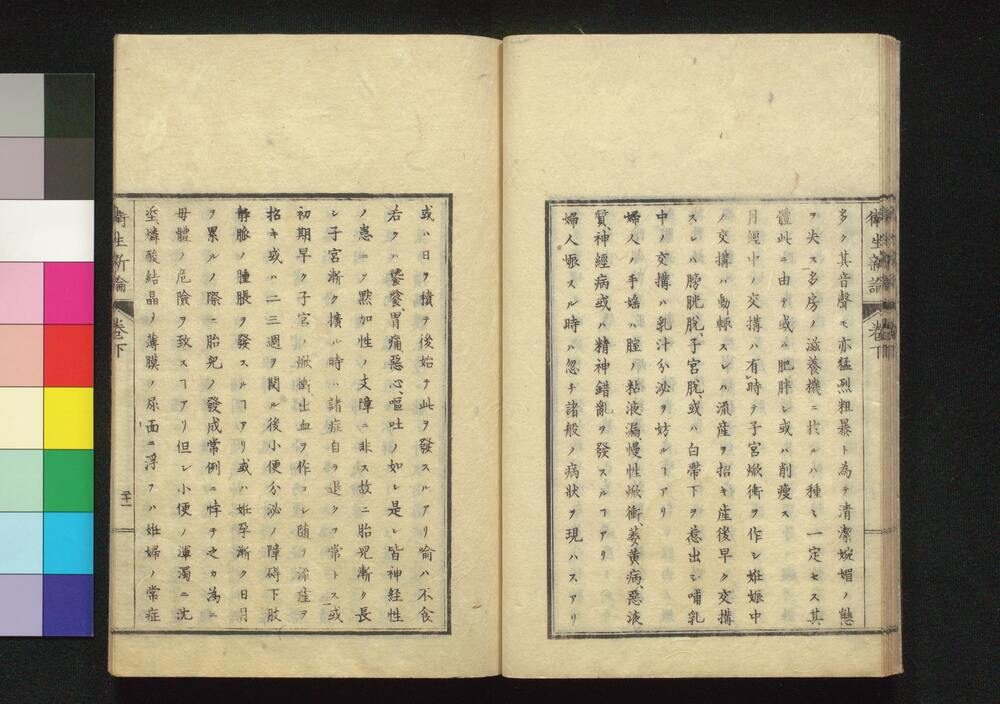 衛生新論
卷下
多ク其音聲モ亦猛烈粗暴ト為テ清潔婉媚ノ態
ヲ失ス多房ノ滋養機ニ於ルハ種々一定セス其
體此ニ由テ或ハ肥胖シ或ハ削瘦ス
月經中ノ交媾ハ有時テ子宮焮衝ヲ作シ姙娠中
ノ交媾ハ動輙スレハ流産ヲ招キ産後早ク交媾
スレハ膀胱脫、子宮脫、或ハ白帶下ヲ惹出シ哺乳
中ノ交媾ハ乳汁分泌ヲ妨ルヿアリ
婦人ノ手婬ハ腟ノ粘液漏慢性焮衝、萎黃病、惡液
質、神經病或ハ精神錯亂ヲ發スルヿアリ
婦人娠スル時ハ忽チ諸般ノ病狀ヲ現ハスアリ
或ハ日ヲ積テ後始テ此ヲ發スルアリ喻ハ不食
若クハ饕餮、胃痛惡心、嘔吐ノ如シ是レ皆神経性
ノ患ニシテ㸃加性ノ支障ニ非ス故ニ胎兒漸ク長
シ子宮漸ク擴ル時ハ諸症自ラ退クヲ常トス或
初期早ク子宮ノ焮衝出血ヲ作コシ墮ヲ流産ヲ
招キ或ハ二三週ヲ閱ル後小便分泌ノ障碍下肢
靜脈ノ腫脹ヲ發スルヿアリ或ハ姙孕漸ク日月
ヲ累ルノ際ニ胎兒ノ發成常例ニ悖ヲ之カ為ニ
母體ノ危險ヲ致スヿアリ但シ小便ノ渾濁ニ沈
垽、燐酸結晶ノ薄膜ノ尿面ニ浮フハ姙婦ノ常症
衛生新論
卷下
二十一